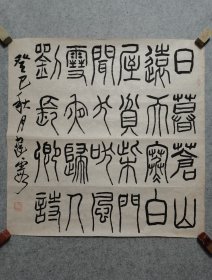 日暮蒼山
遠天寒白
屋貧柴門
聞犬吠風
雪夜歸人
劉長卿詩
癸巳秋月